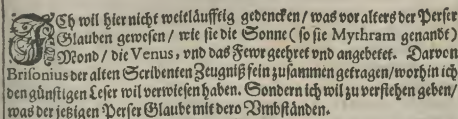 JCh wil hier nicht weitläufftig gedencken / was vor alters der Perser
Glauben gewesen / wie sie die Sonne (so sie Mythram genandt)
Mond / die Venus, vnd das Fewr geehret vnd angebetet. Darvon
Brisonius der alten Scribenten Zeugniß fein zusammen getragen / worhin ich
den günstigen Leser wil verwiesen haben. Sondern ich wil zu verstehen geben /
was der jetzigen Perser Glaube mit dero Vmbständen.